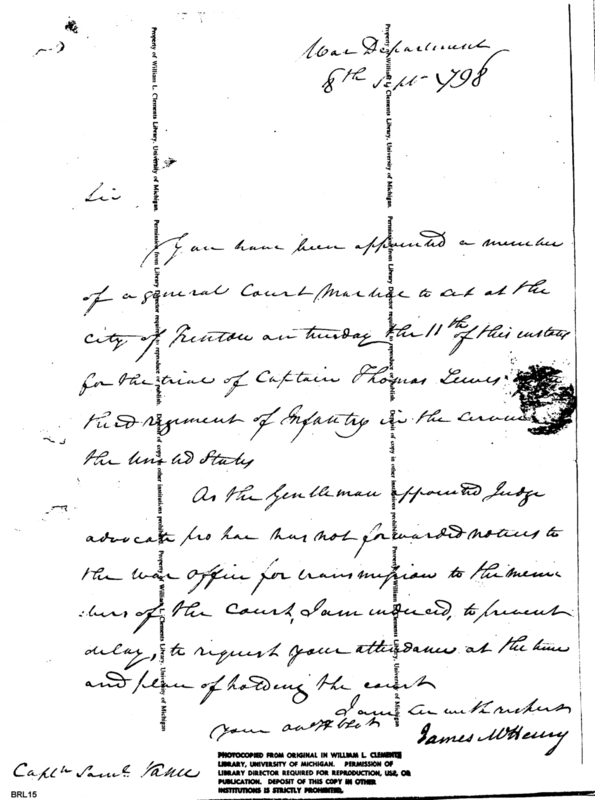 War Department
8th Sept. 1798
Sir
You have been appointed a member
of a general Court Martial to set at the
city of Trenton on tuesday the 11th of this instant
for the trial of Captain Thomas Lewis
third regiment of Infantry in the service
the United States
As the Gentleman appointed Judge
advocate pro hac has not forwarded notices to
the war office for transmission to the mem
:bers of the Court, I am induced, to prevent
delay, to request your attendance at the time
and place of holding the court
I am Sir with respect
your Obt
James McHenry
Capt. Saml.
Property of William L. Clements Library, University of Michigan. Permission from Library Director required to reproduce or publish. Deposit of copy in other institutions prohibited.
Property of William L. Clements Library, University of Michigan. Permission from Library Director required to reproduce or publish. Deposit of copy in other institutions prohibited.
PHOTOCOPIED FROM ORIGINAL IN WILLIAM L. CLEMENTS
LIBRARY, UNIVERSITY OF MICHIGAN. PERMISSION OF
LIBRARY DIRECTOR REQUIRED FOR REPRODUCTION, USE, OR
PUBLICATION. DEPOSIT OF THIS COPY IN OTHER
INSTITUTIONS IS STRICTLY PROHIBITED.
BRL15